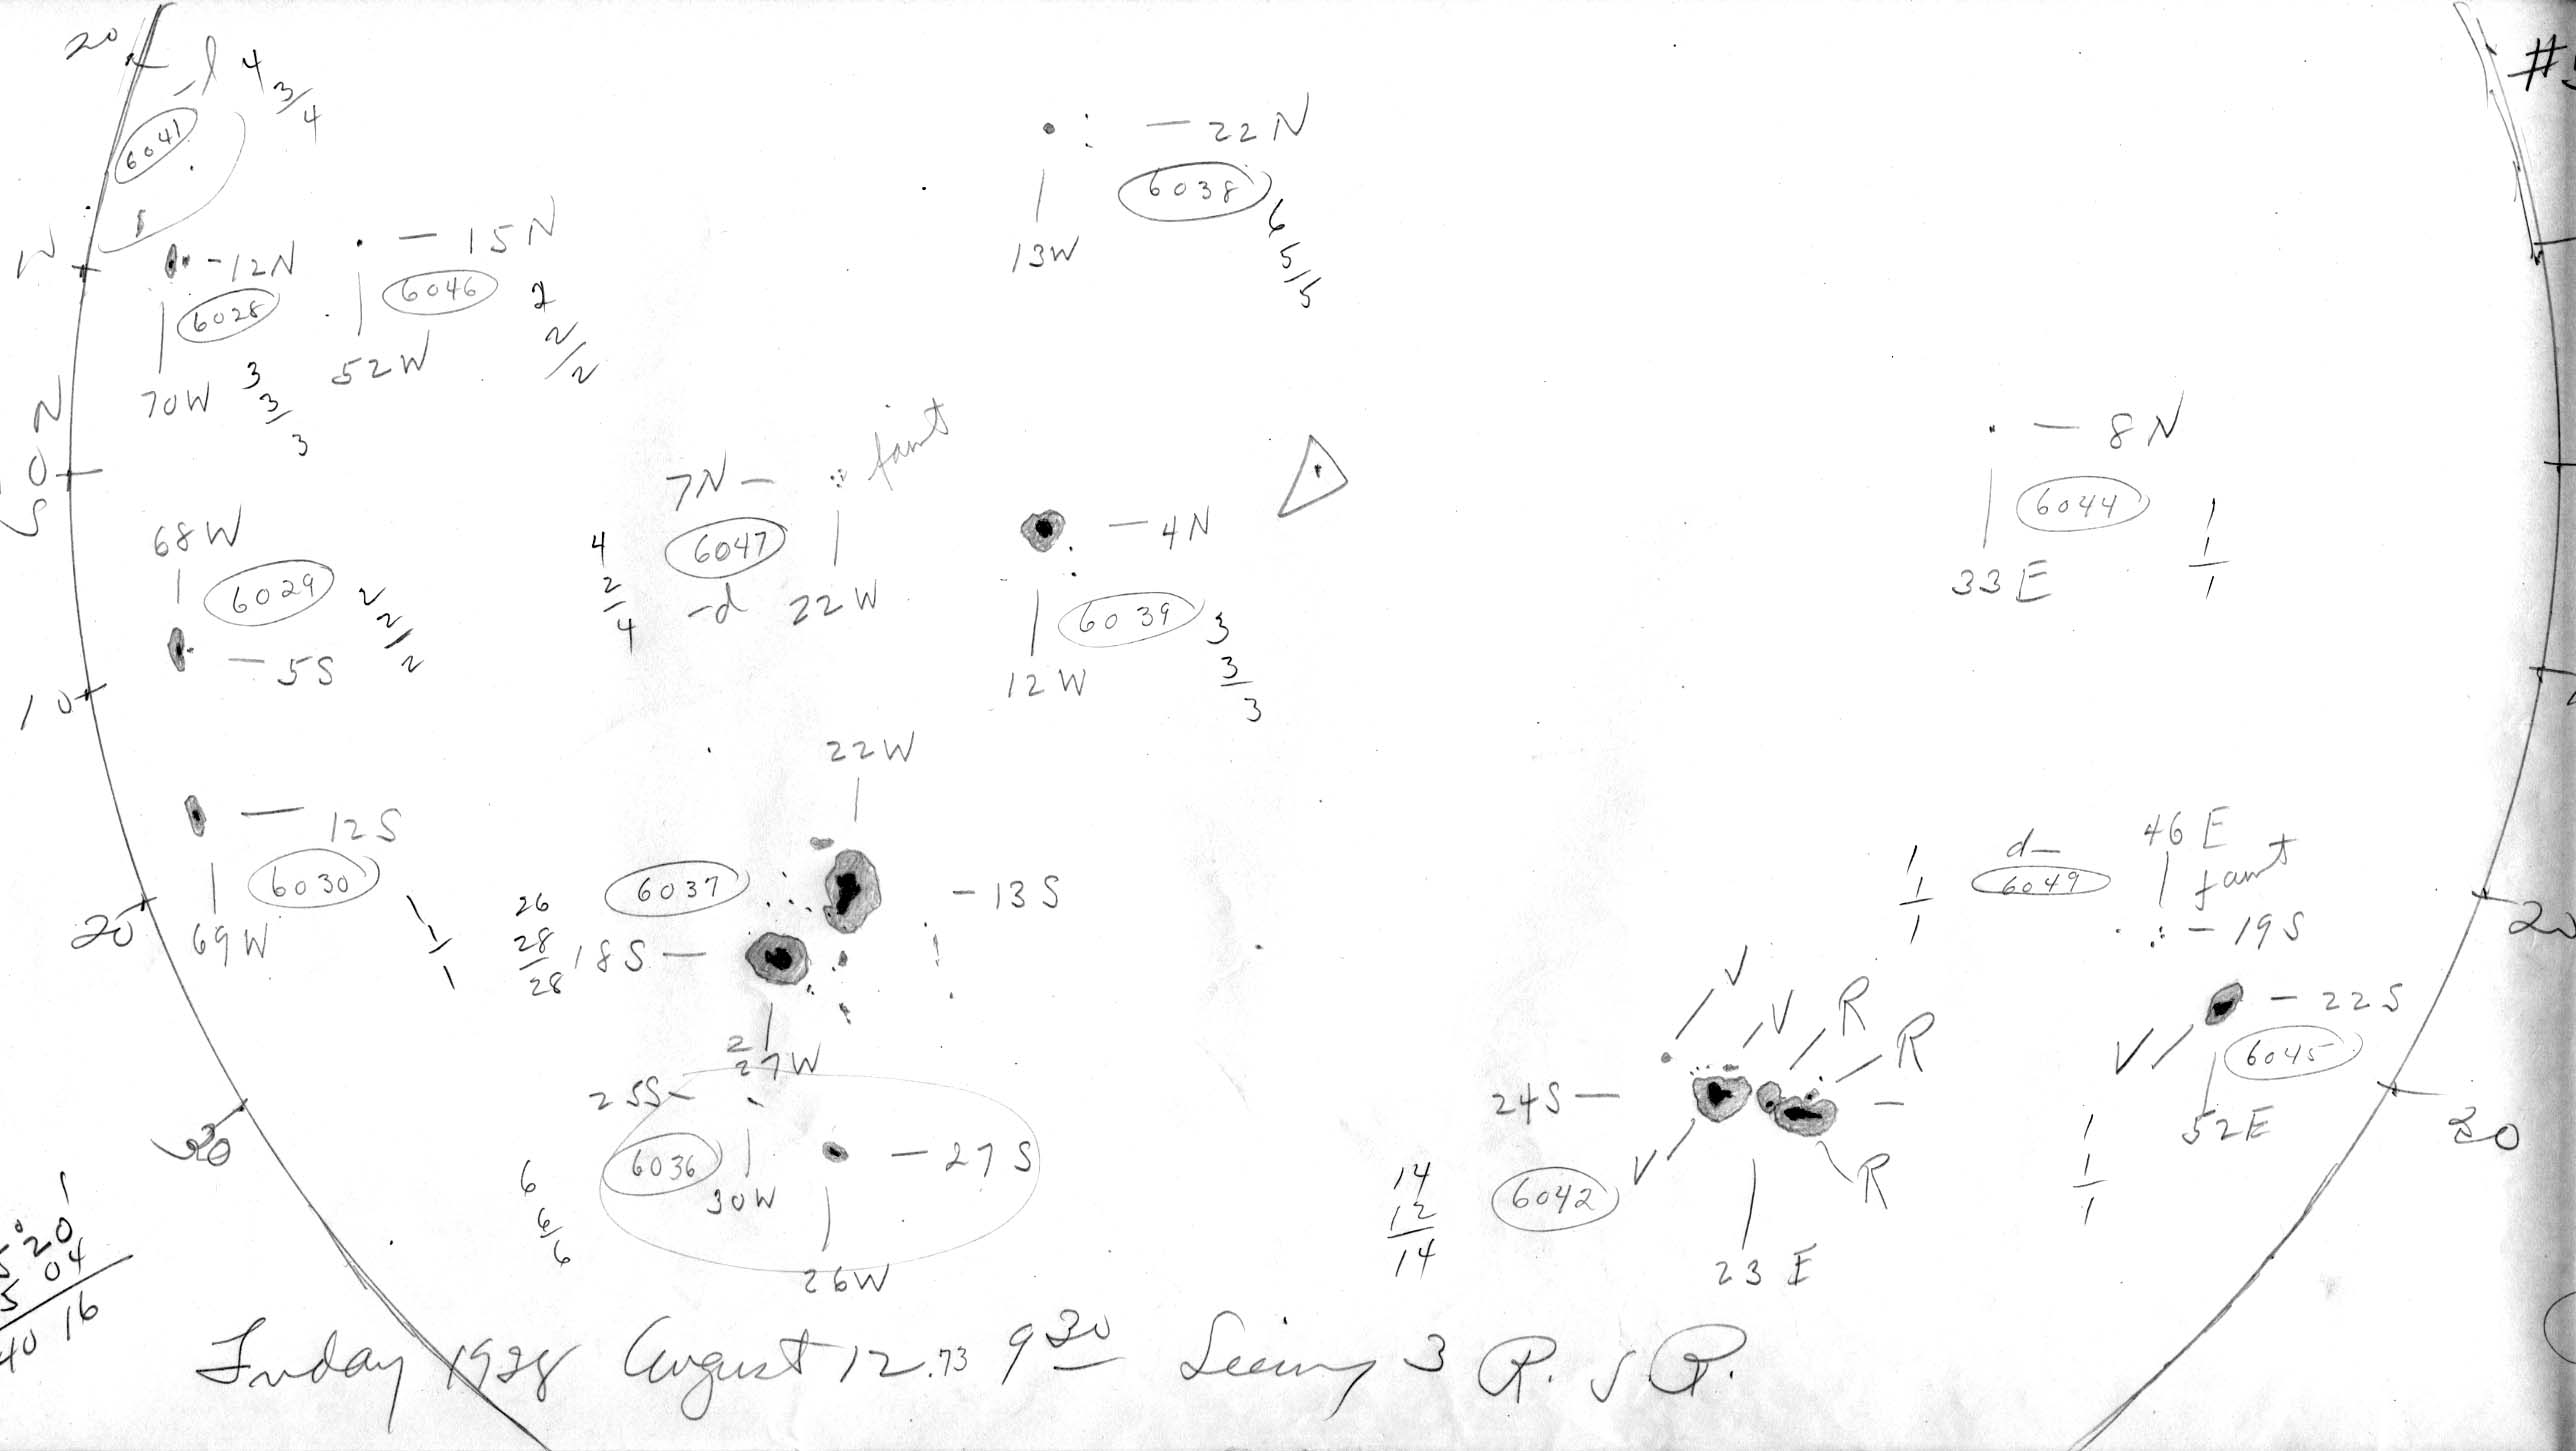 20
-l 4
3/4
6041
#
- 22N
6038
13W
6
5/5
-12N
6028
70W
3
3/3
- 15N
6046
52W
2
2/2
N
0
S
7N -
faint
6047
-d 22W
4
2/4
- 4N
6039
12W
3
3/3
- 8N
6044
33E
1
1/1
68W
6029
- 5S
2
2/2
10
- 12S
6030
69W
1
1/1
20
22W
6037
- 13S
26
28
28
18S -
27W
46E
d-
6049
faint
- 19S
1
1/1
20
- 22S
V
6045
52E
1
1/1
V
V
R
R
24S -
-
V
R
6042
23 E
14
12
14
30
30
25S -
6036
30W
- 27S
26W
6
6/6
5° 20
5 04
40 16
Friday 1938 August 12.73 9 30 Seeing 3 R. S.R.